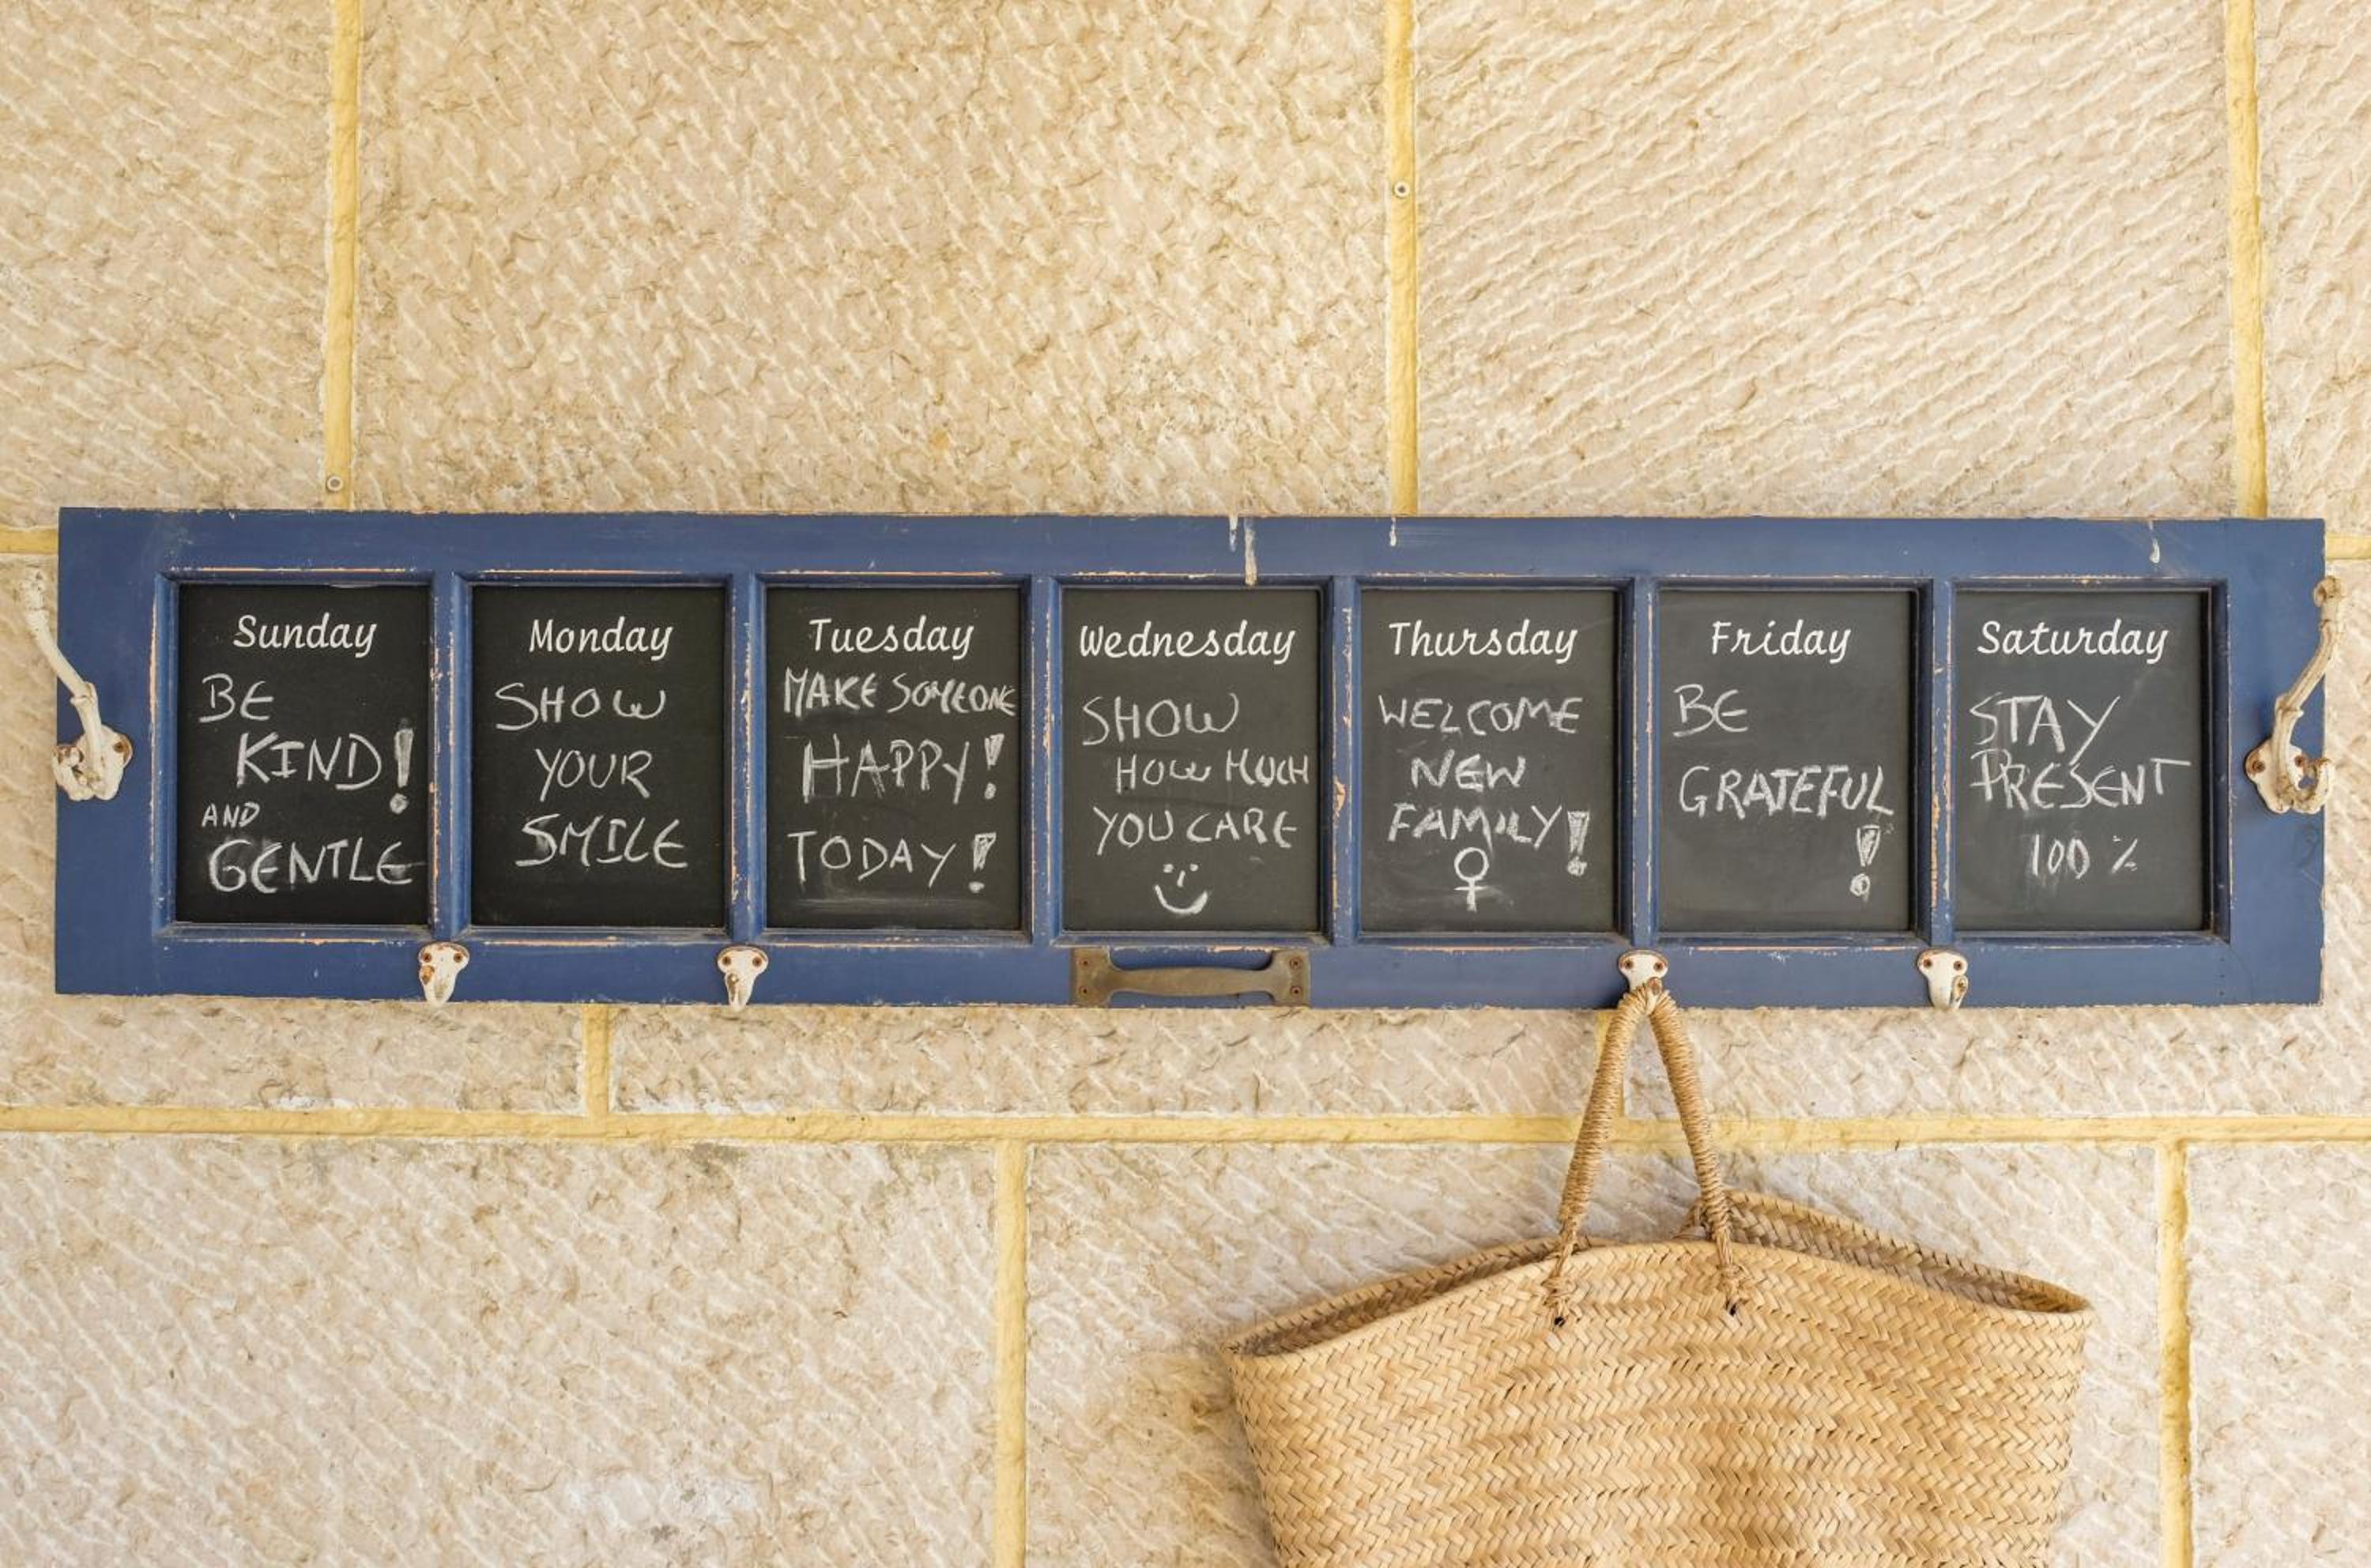 Sunday
BE
KIND!
AND
GENTLE
Monday
SHOW
YOUR
SMILE
Tuesday
MAKE SOMEONE
HAPPY!
TODAY!
Wednesday
SHOW
HOW MUCH
YOU CARE
Thursday
WELCOME
NEW
FAMILY!
Friday
BE
GRATEFUL
!
Saturday
STAY
PRESENT
100 %